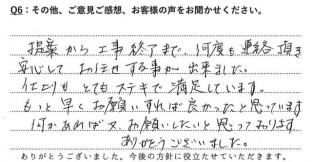 Q6:その他、ご意見ご感想、お客様の声をお聞かせください。
提案から工事終了まで、何度も連絡頂き
安心してお任せする事が出来ました。
仕上りもとてもステキで満足しています。
もっと早くお願いすれば良かったと思っています
何かあれば又、お願いしたいと思っております
ありがとうございました。
ありがとうございました。今後の方針に役立たせていただきます。